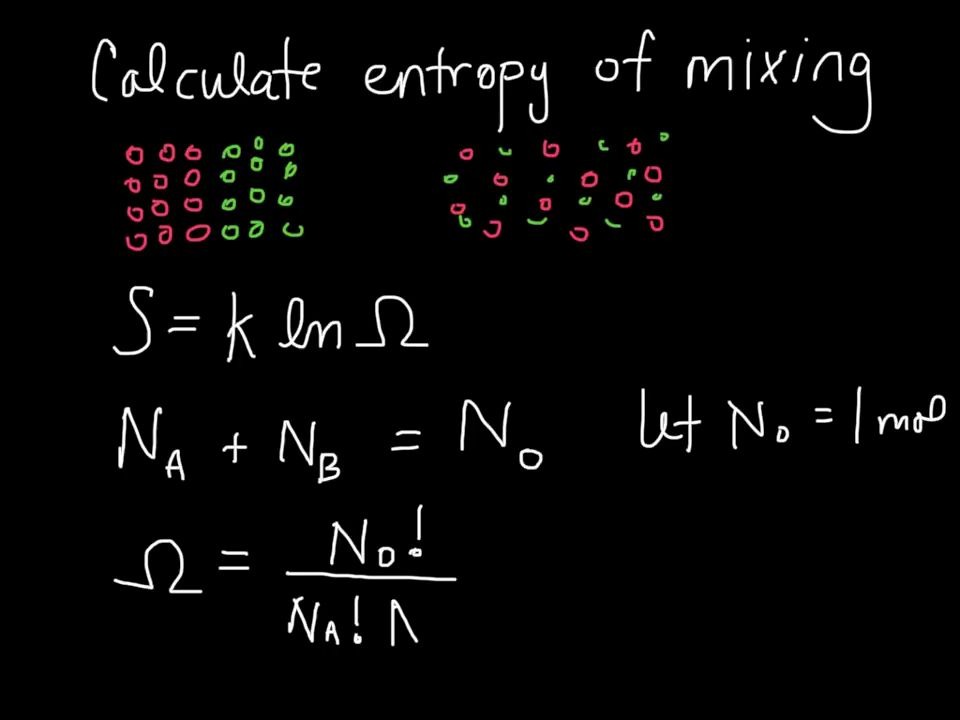 Calculate entropy of mixing
S = k ln Ω
N_A + N_B = N_0 let N_0 = 1 mol
Ω = N_0! / N_A! N